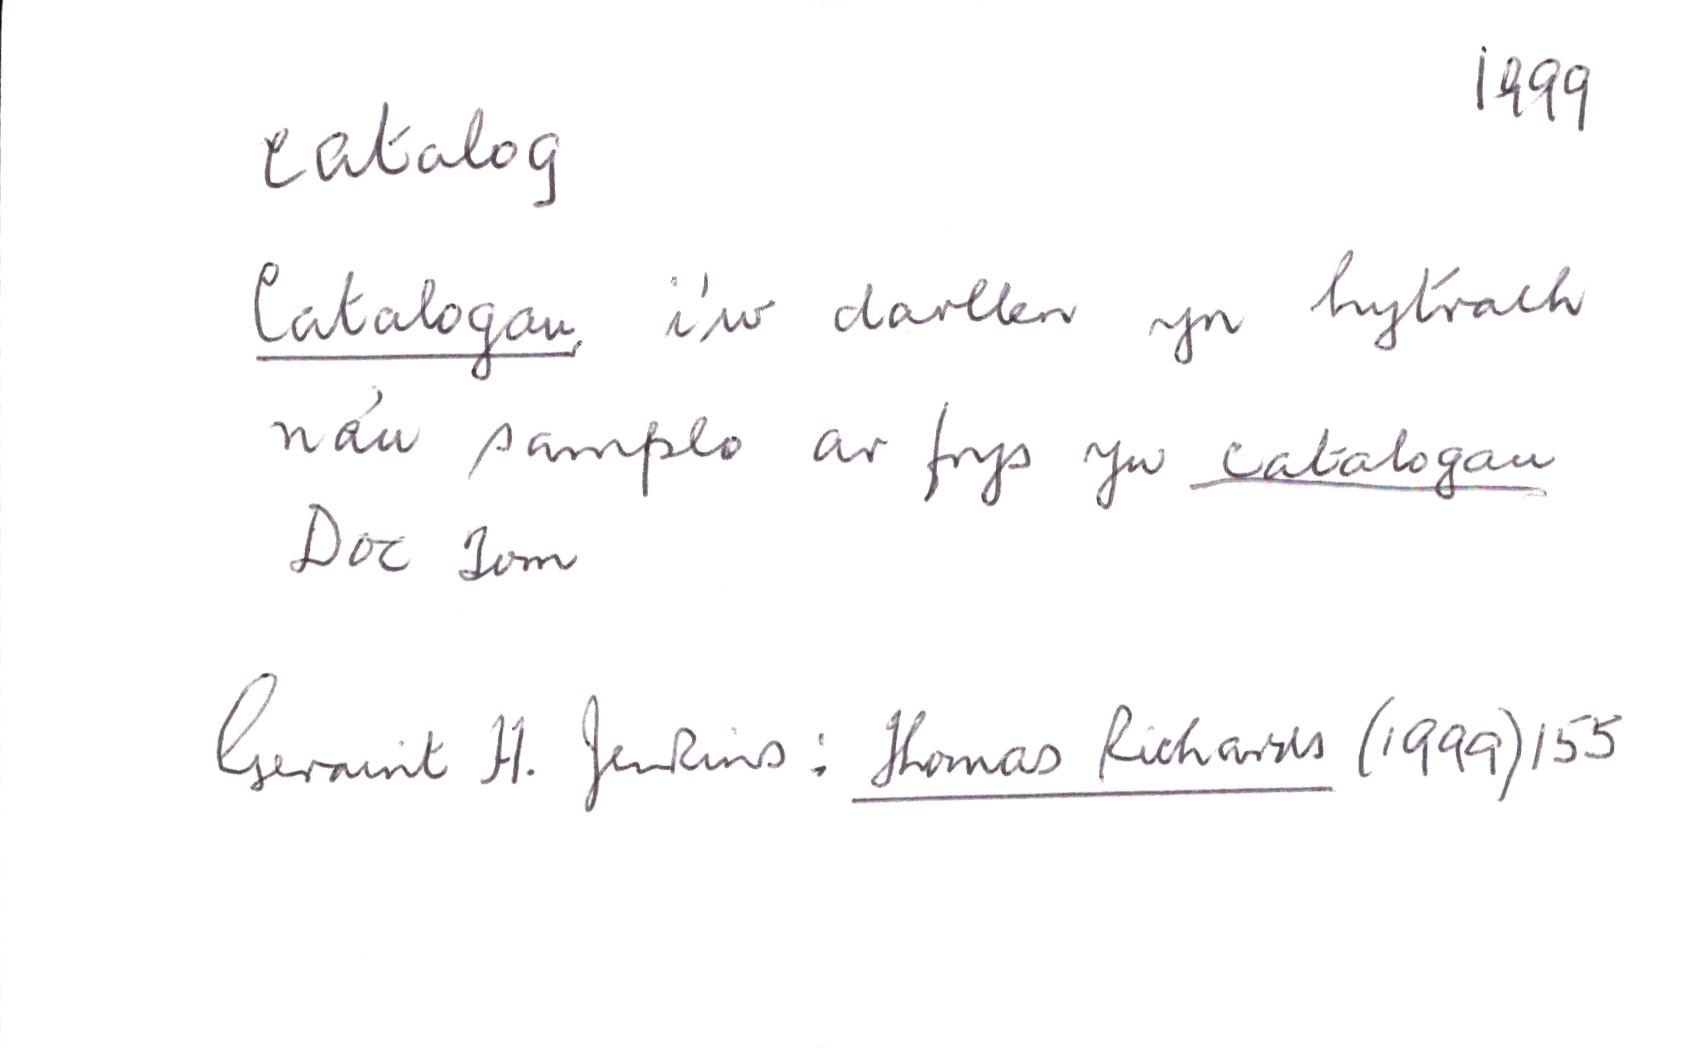 1999
catalog
Catalogau i'w darllen yn hytrach
na'u samplo ar frys yw catalogau
Doc Tom
Geraint H. Jenkins: Thomas Richards (1999) 155